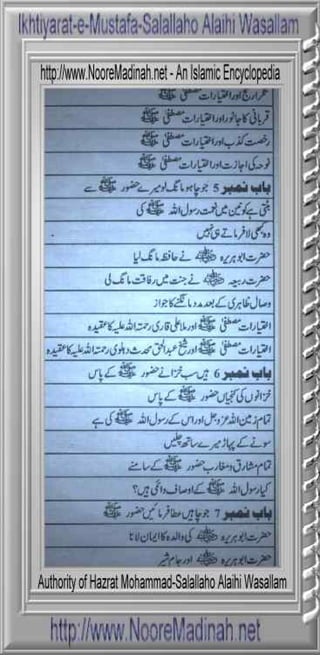 Ikhtiyarat-e-Mustafa-Salallaho Alaihi Wasallam
http://www.NooreMadinah.net - An Islamic Encyclopedia
تکرارِ حج اور اختیارات مصطفیٰ ﷺ
قربانی کا جانور اور اختیارات مصطفیٰ ﷺ
رخصت کذب اور اختیارات مصطفیٰ ﷺ
نوحہ کی اجازت اور اختیارات مصطفیٰ ﷺ
باب نمبر 5 جو چاہو مانگ لو میرے حضور ﷺ سے
بٹتی ہے کونین میں نعمت رسول اللہ ﷺ کی
وہ کبھی لا فرماتے ہی نہیں
حضرت ابوہریرہ نے حافظہ مانگ لیا
حضرت ربیعہ نے جنت میں رفاقت مانگ لی
وصال ظاہری کے بعد مدد مانگنے کا جواز
اختیارات مصطفیٰ ﷺ اور ملا علی قاری رحمۃ اللہ علیہ کا عقیدہ
اختیارات مصطفیٰ ﷺ اور شیخ عبدالحق محدث دہلوی رحمۃ اللہ علیہ کا عقیدہ
باب نمبر 6 ہیں سب خزانے حضور ﷺ کے پاس
خزانوں کی کنجیاں حضور ﷺ کے پاس
تمام زمین اللہ عزوجل اور اس کے رسول اللہ ﷺ کی ہے
سونے کے پہاڑ میرے ساتھ چلیں
تمام مشارق و مغارب حضور ﷺ کے سامنے
کیا رسول اللہ ﷺ کے اوصاف دائمی ہیں؟
باب نمبر 7 جو چاہیں عطا فرمائیں حضور ﷺ
حضرت ابوہریرہ کی والدہ کا ایمان لانا
حضرت ابوہریرہ اور جام شیر
Authority of Hazrat Mohammad-Salallaho Alaihi Wasallam
http://www.NooreMadinah.net